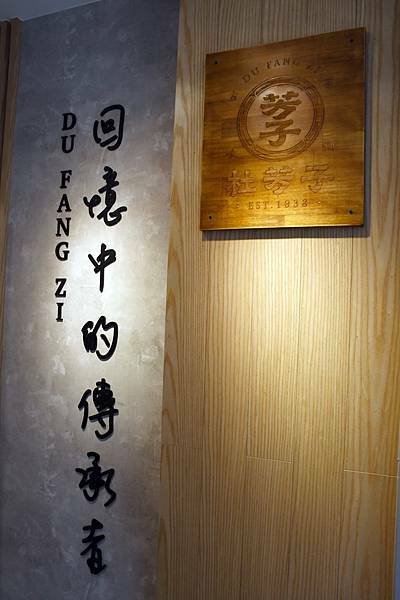 回憶中的傳承者
DU FANG ZI
DU FANG ZI
芳子
杜芳子
EST.1933